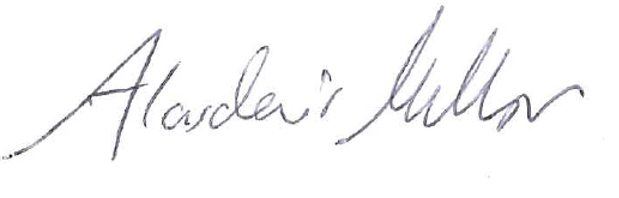 Alasdair Mellor